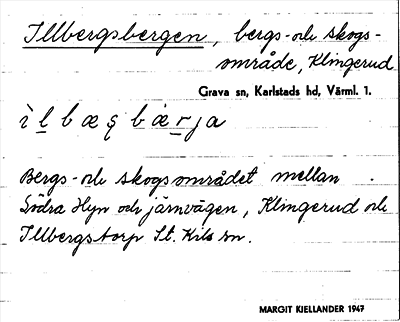 Illbergsbergen, bergs- och skogs-
område, Klingerud
Grava sn, Karlstads hd, Värml. l.
ìlbæȿbærja
Bergs- och skogsområdet mellan
Södra Hyn och järnvägen, Klingerud och
Illbergstorp St. Kils sn.
MARGIT KIELLANDER 1947